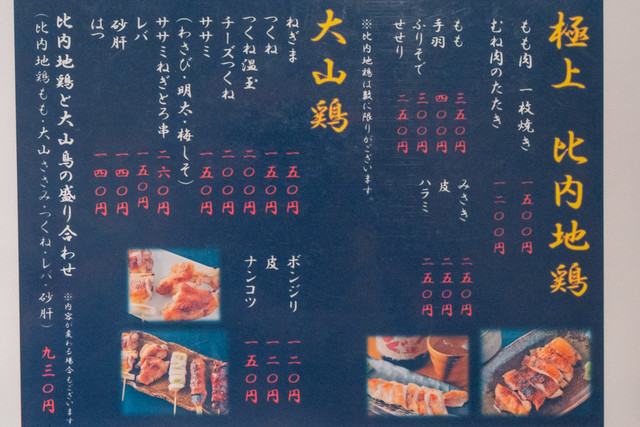 極上 比内地鶏
もも肉 一枚焼き 一五〇〇円
むね肉のたたき 一二〇〇円
もも 三五〇円
手羽 四〇〇円
ふりそで 三〇〇円
せせり 二五〇円
みさき 二五〇円
皮 二五〇円
ハラミ 二五〇円
※比内地鶏は数に限りがございます。
大山鶏
ねぎま 一五〇円
つくね 一五〇円
つくね温玉 二〇〇円
チーズつくね 二〇〇円
ササミ 一五〇円
(わさび・明太・梅しそ)
ササミねぎとろ串 二六〇円
レバ 一五〇円
砂肝 一四〇円
はつ 一四〇円
ボンジリ 一二〇円
皮 一二〇円
ナンコツ 一五〇円
比内地鶏と大山鳥の盛り合わせ
※内容が変わる場合もございます
(比内地鶏もも・大山ささみ・つくね・レバ・砂肝) 九三〇円